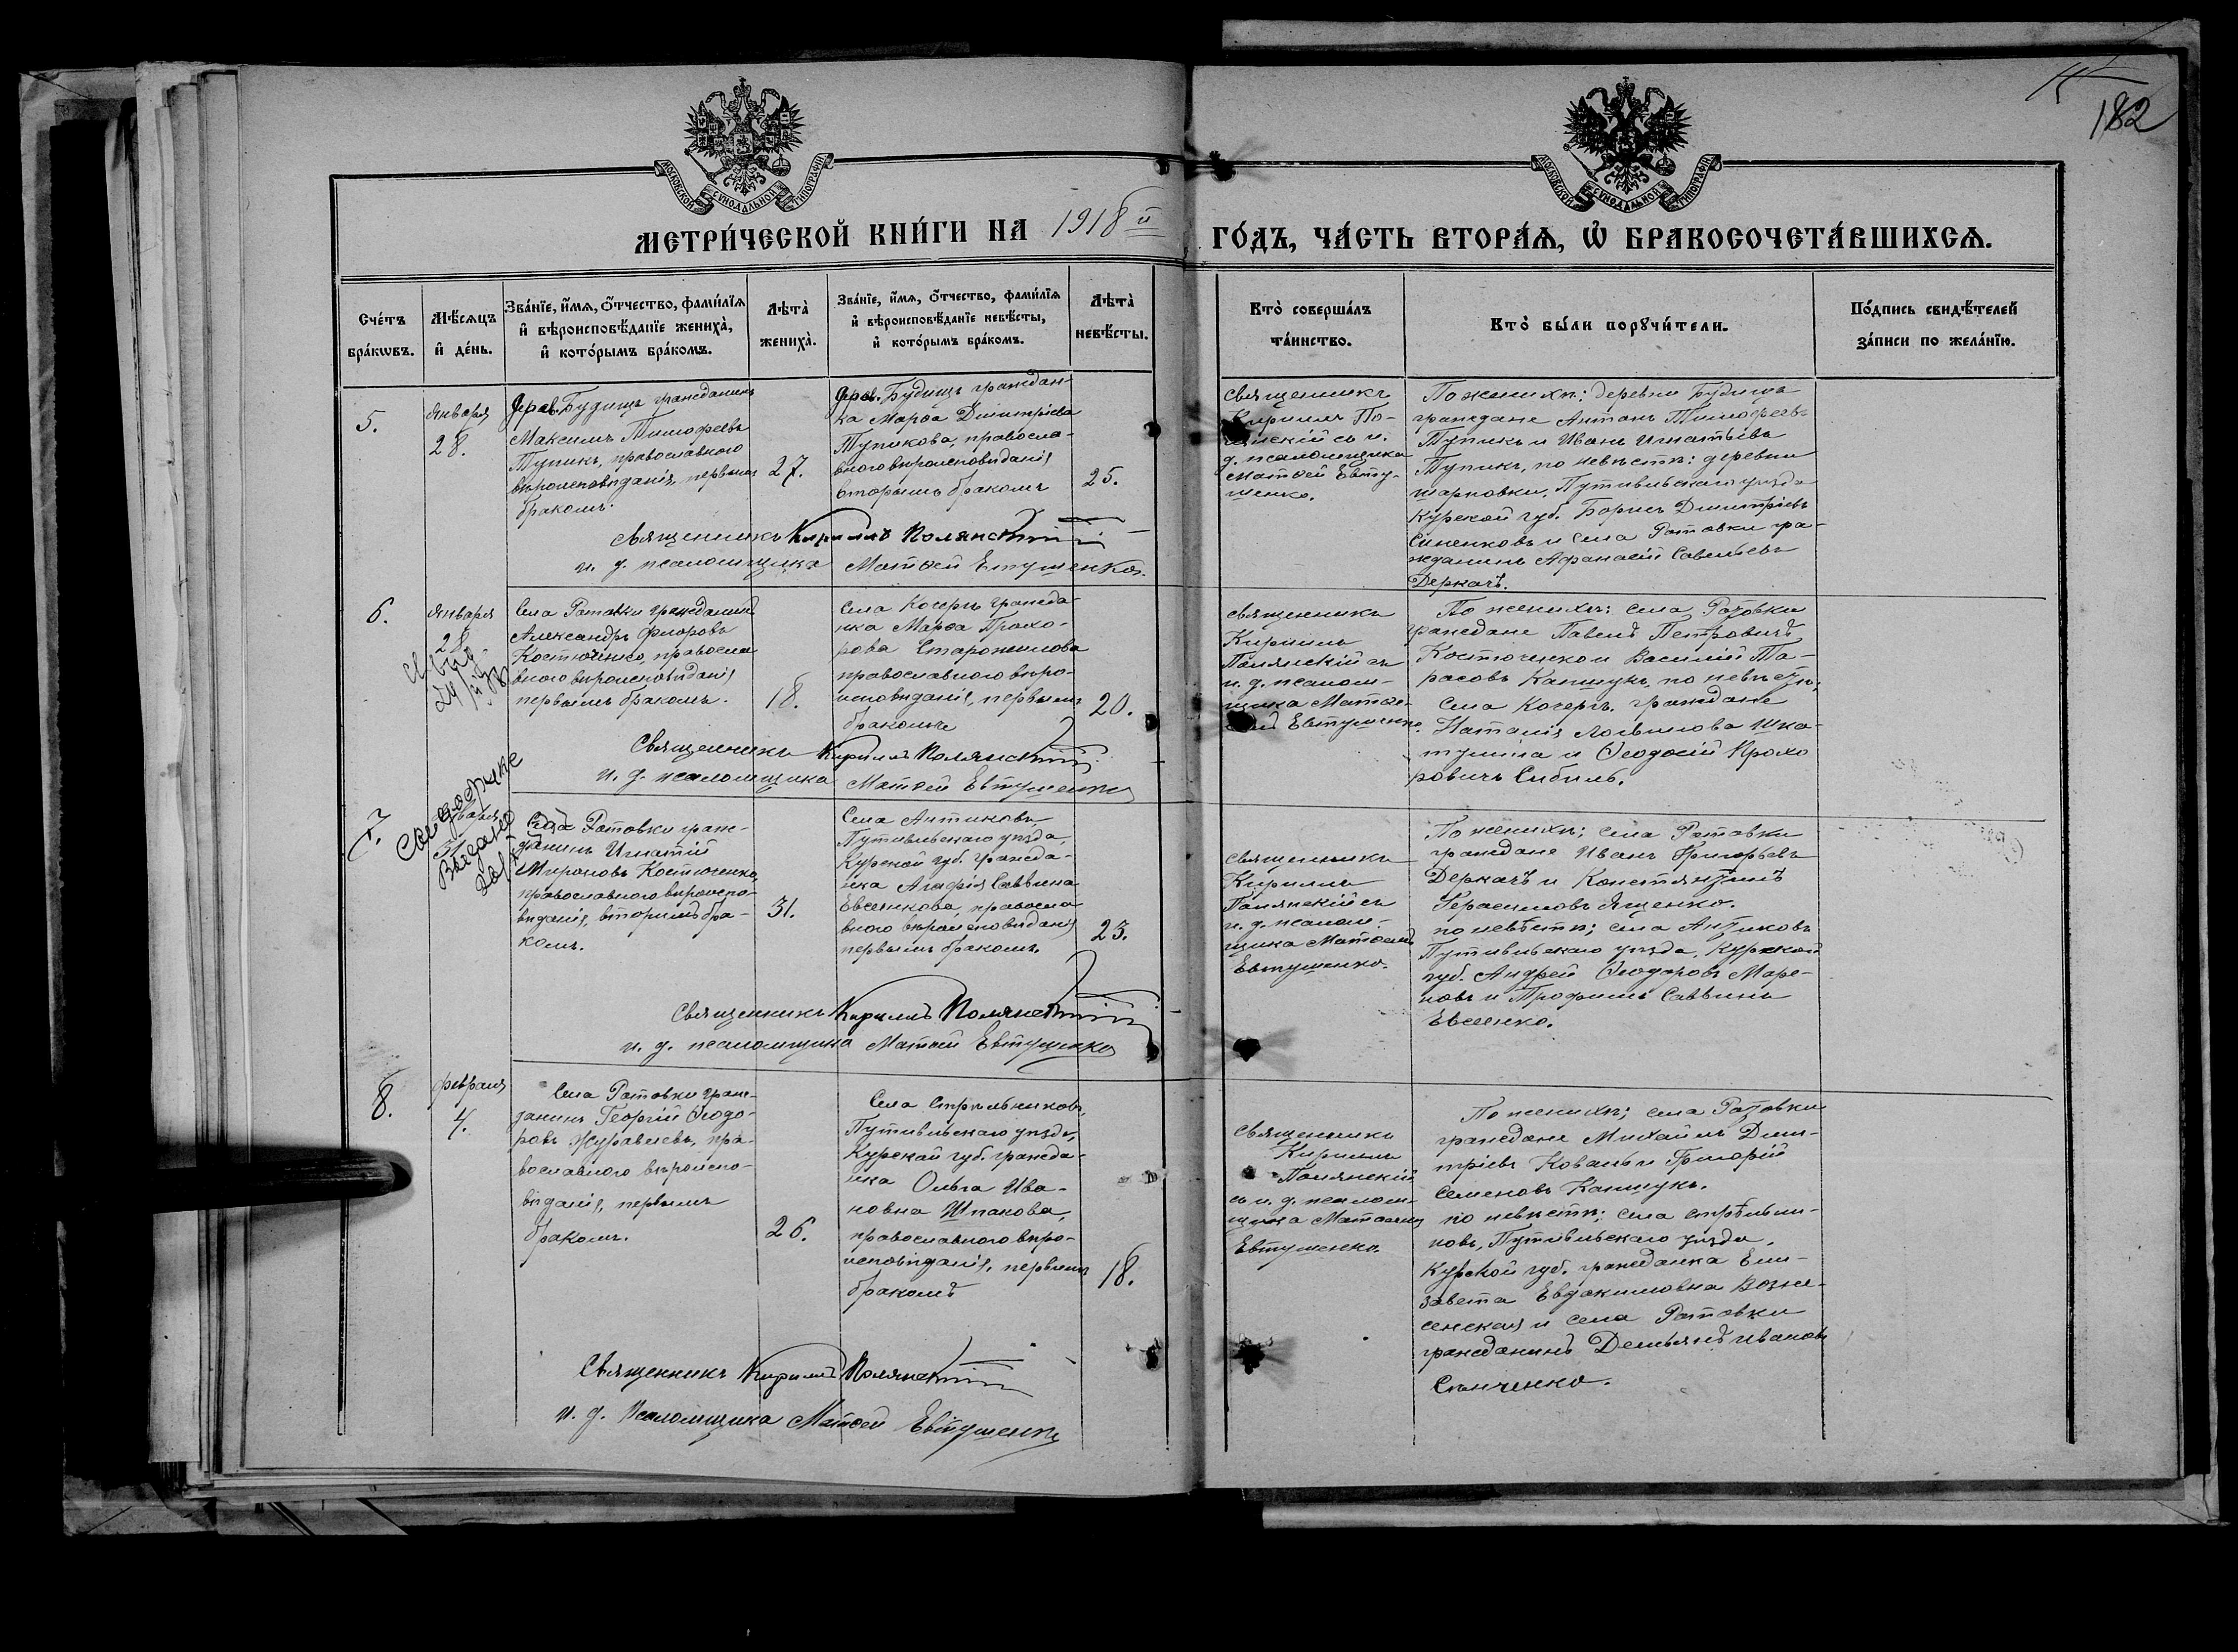 182
МОСКОВСКОЙ СѴНОДАЛЬНОЙ ТИПОГРАФІИ
МОСКОВСКОЙ СѴНОДАЛЬНОЙ ТИПОГРАФІИ
МЕТРИ́ЧЕСКОЙ КНИ́ГИ НА 1918 й ГО́ДЪ, ЧА́СТЬ ВТОРА́Ѧ, Ѡ҆ БРАКОСОЧЕТА́ВШИХСѦ.
Сче́тъ
бра́кѡвъ.
Мѣ́сѧцъ
и҆ де́нь.
Зва́нїе, и҆́мѧ, ѻ҆́тчество, фами́лїѧ
и҆ вѣроисповѣ́данїе жениха̀,
и҆ кото́рымъ бра́комъ.
Лѣ́та̀
жениха̀.
Зва́нїе, и҆́мѧ, ѻ҆́тчество, фами́лїѧ
и҆ вѣроисповѣ́данїе невѣ́сты,
и҆ кото́рымъ бра́комъ.
Лѣ́та̀
невѣ́сты.
Кто̀ соверша́лъ
та́инство.
Кто̀ бы́ли порꙋчи́тели.
По́дпись свидѣ́телей
за́писи по жела́нїю.
5.
Января
28.
Дерев. Будищъ гражданинъ
Максимъ Тимофеевъ
Тупикъ, православнаго
вѣроисповѣданія, первымъ
бракомъ.
27.
Дерев. Будищъ граждан-
ка Марѳа Димитріева
Тупикова, правосла-
внаго вѣроисповѣданія
вторымъ бракомъ
25.
Священникъ
Кириллъ По-
лянскій съ и.
д. псаломщика
Матѳей Евту-
шенко.
По женихѣ: деревни Будища
граждане Антонъ Тимофеевъ
Тупикъ и Иванъ Игнатьевъ
Тупикъ, по невѣстѣ: деревни
Шарповки, Путивльскаго уѣзда
Курской губ. Борисъ Димитріевъ
Синенковъ и села Ротовки гра-
жданинъ Афанасій Савельевъ
Деркачъ.
Священникъ Кириллъ Полянскій
и. д. псаломщика Матѳей Евтушенко.
6.
Января
28.
Села Ротовки гражданинъ
Александръ Флоровъ
Костюченко, правосла
внаго вѣроисповѣданія
первымъ бракомъ.
18.
Села Кочергъ гражда-
нка Марѳа Прохо-
рова Старожилова
православнаго вѣро-
исповѣданія, первымъ
бракомъ
20.
Священникъ
Кириллъ
Полянскій съ
и. д. псалом-
щика Матѳе-
емъ Евтушенко.
По женихѣ: села Ротовки
граждане Павелъ Петровичъ
Костюченко и Василій Та-
расовъ Капшукъ, по невѣстѣ:
Села Кочергъ, граждане
Наталія Логвинова Шка-
тулина и Ѳеодосій Прохо
ровичъ Сибиль.
Священникъ Кириллъ Полянскій
и. д. псаломщика Матѳей Евтушенко
7.
31
Выдано
Села Ротовки граж-
данинъ Игнатій
Мироновъ Костюченко,
православнаго вѣроиспо-
вѣданія, вторымъ бра-
комъ.
31.
Села Антиковъ
Путивльскаго уѣзда,
Курской губ. гражда-
нка Агафія Саввина
Евсеенкова, правосла
внаго вѣроисповѣданія
первымъ бракомъ.
23.
Священникъ
Кириллъ
Полянскій съ
и. д. псалом-
щика Матѳеемъ
Евтушенко.
По женихѣ; села Ротовки
граждане Иванъ Григорьевъ
Деркачъ и Константинъ
Герасимовъ Ященко.
по невѣстѣ; села Антиковъ
Путивльскаго уѣзда, Курской
губ. Андрей Ѳеодоровъ Маре-
ковъ и Трофимъ Саввинъ
Евсеенко.
Священникъ Кириллъ Полянскій
и. д. псаломщика Матѳей Евтушенко
8.
февраля
4.
Села Ротовки граж-
данинъ Георгій Ѳеодо-
ровъ Журавлевъ, пра-
вославнаго вѣроиспо-
вѣданія, первымъ
бракомъ.
26.
Села Стрѣльниковъ
Путивльскаго уѣзда,
Курской губ. гражда-
нка Ольга Ива-
новна Шпакова,
православнаго вѣро-
исповѣданія, первымъ
бракомъ
18.
Священникъ
Кириллъ
Полянскій
съ и. д. псалом-
щика Матѳеемъ
Евтушенко.
По женихѣ; села Ротовки
граждане Михаилъ Дими-
тріевъ Коваль и Григорій
Семеновъ Капшукъ.
по невѣстѣ; села Стрѣльни-
ковъ, Путивльскаго уѣзда,
Курской губ. гражданка Ели-
завета Евдокимовна Возне-
сенская и села Ротовки
гражданинъ Демьянъ Ивановъ
Сѣнченко.
Священникъ Кириллъ Полянскій
и. д. Псаломщика Матѳей Евтушенко